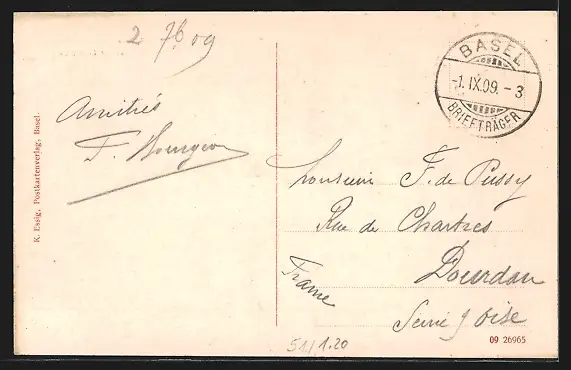 2 7b 09
BASEL
-1.IX.09.-3
BRIEFTRÄGER
Amitiés
F. Bourgeois
Monsieur F. de Pussy
Rue de Chartres
Dourdan
Seine & Oise
France
K. Essig, Postkartenverlag, Basel.
09 26965
51/1.20